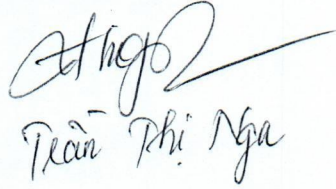 Trần Thị Nga